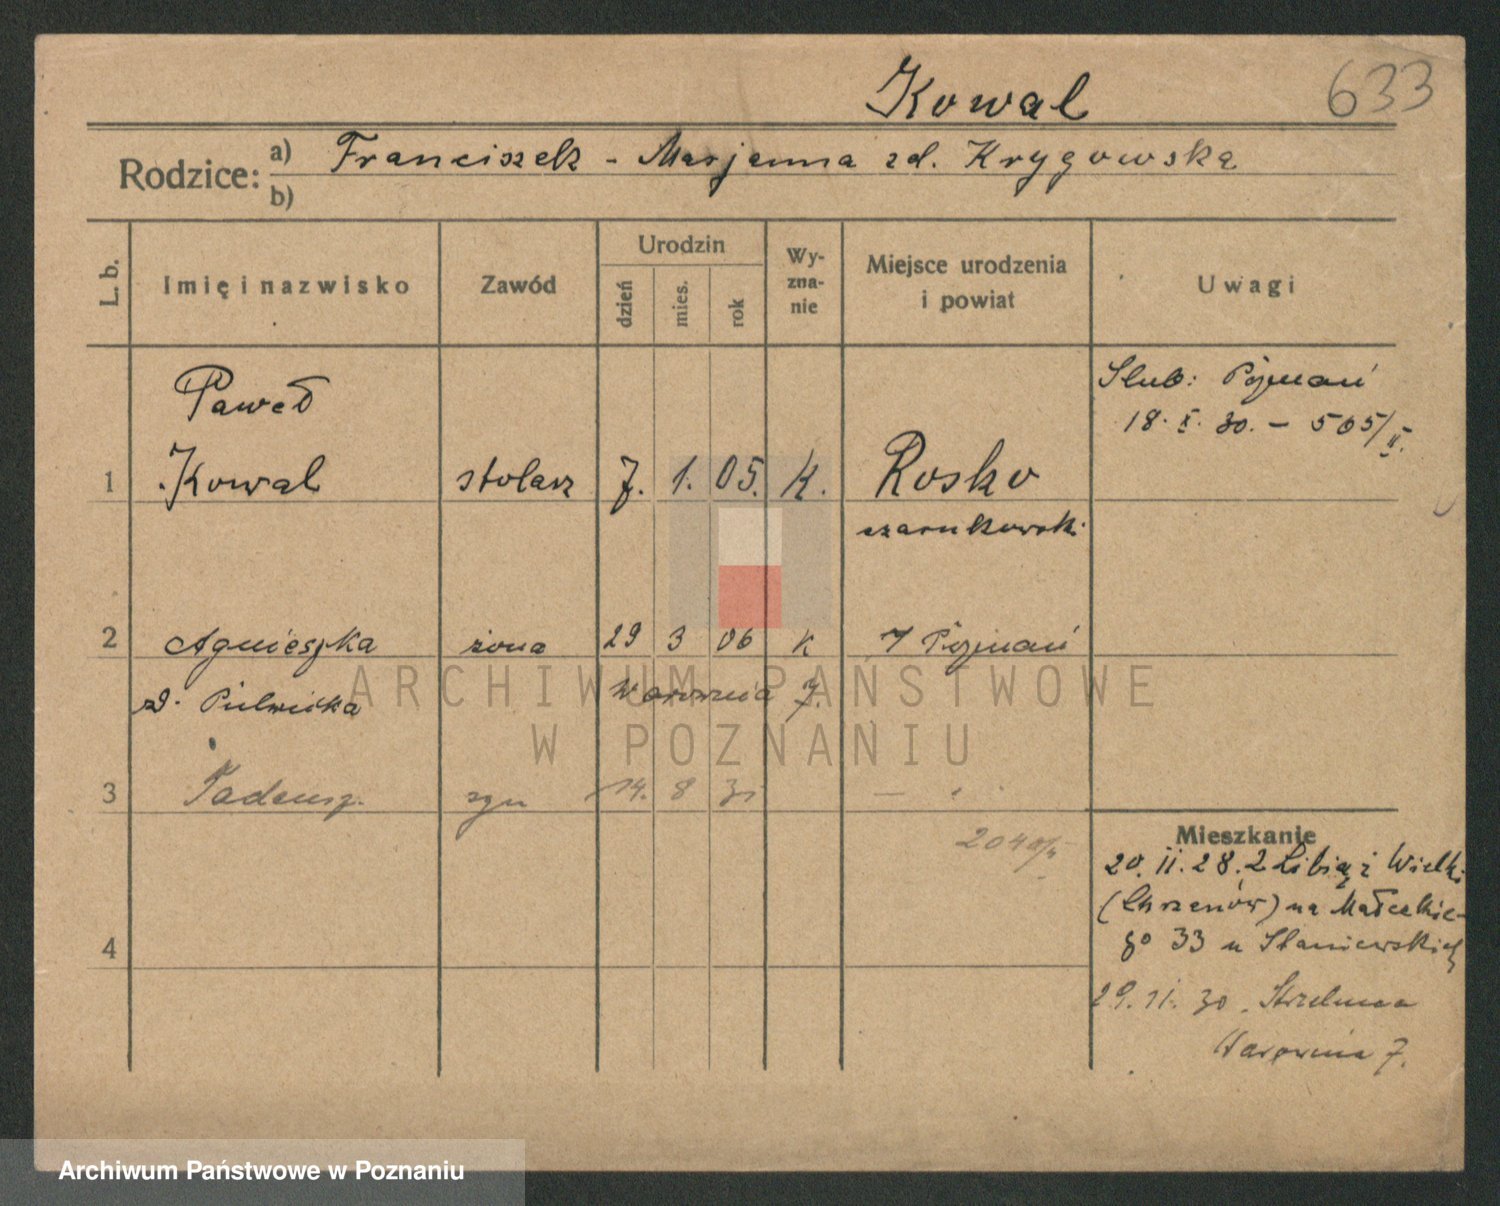 Kowal 633
Rodzice: a) Franciszek - Marjanna zd. Krygowska
b)
L. b. Imię i nazwisko Zawód Urodzin dzień mies. rok Wy-zna-nie Miejsce urodzenia i powiat Uwagi
Ślub: Poznań
18. X. 30. - 505/II.
Paweł
1 Kowal stolarz 7. 1. 05. K. Rosko
czarnkowski
2 Agnieszka żona 29 3 06 K 7 Poznań
zd. Pielucka Warownia 7.
3 Tadeusz syn 14. 8 31 — " .
Mieszkanie
20. II. 28. z Libiąż Wielki
(Chrzanów) na Małeckie-
go 33 u Staniewskich
4
29. 11. 30. Strzelnica
Warownia 7.
ARCHIWUM PAŃSTWOWE
W POZNANIU
Archiwum Państwowe w Poznaniu